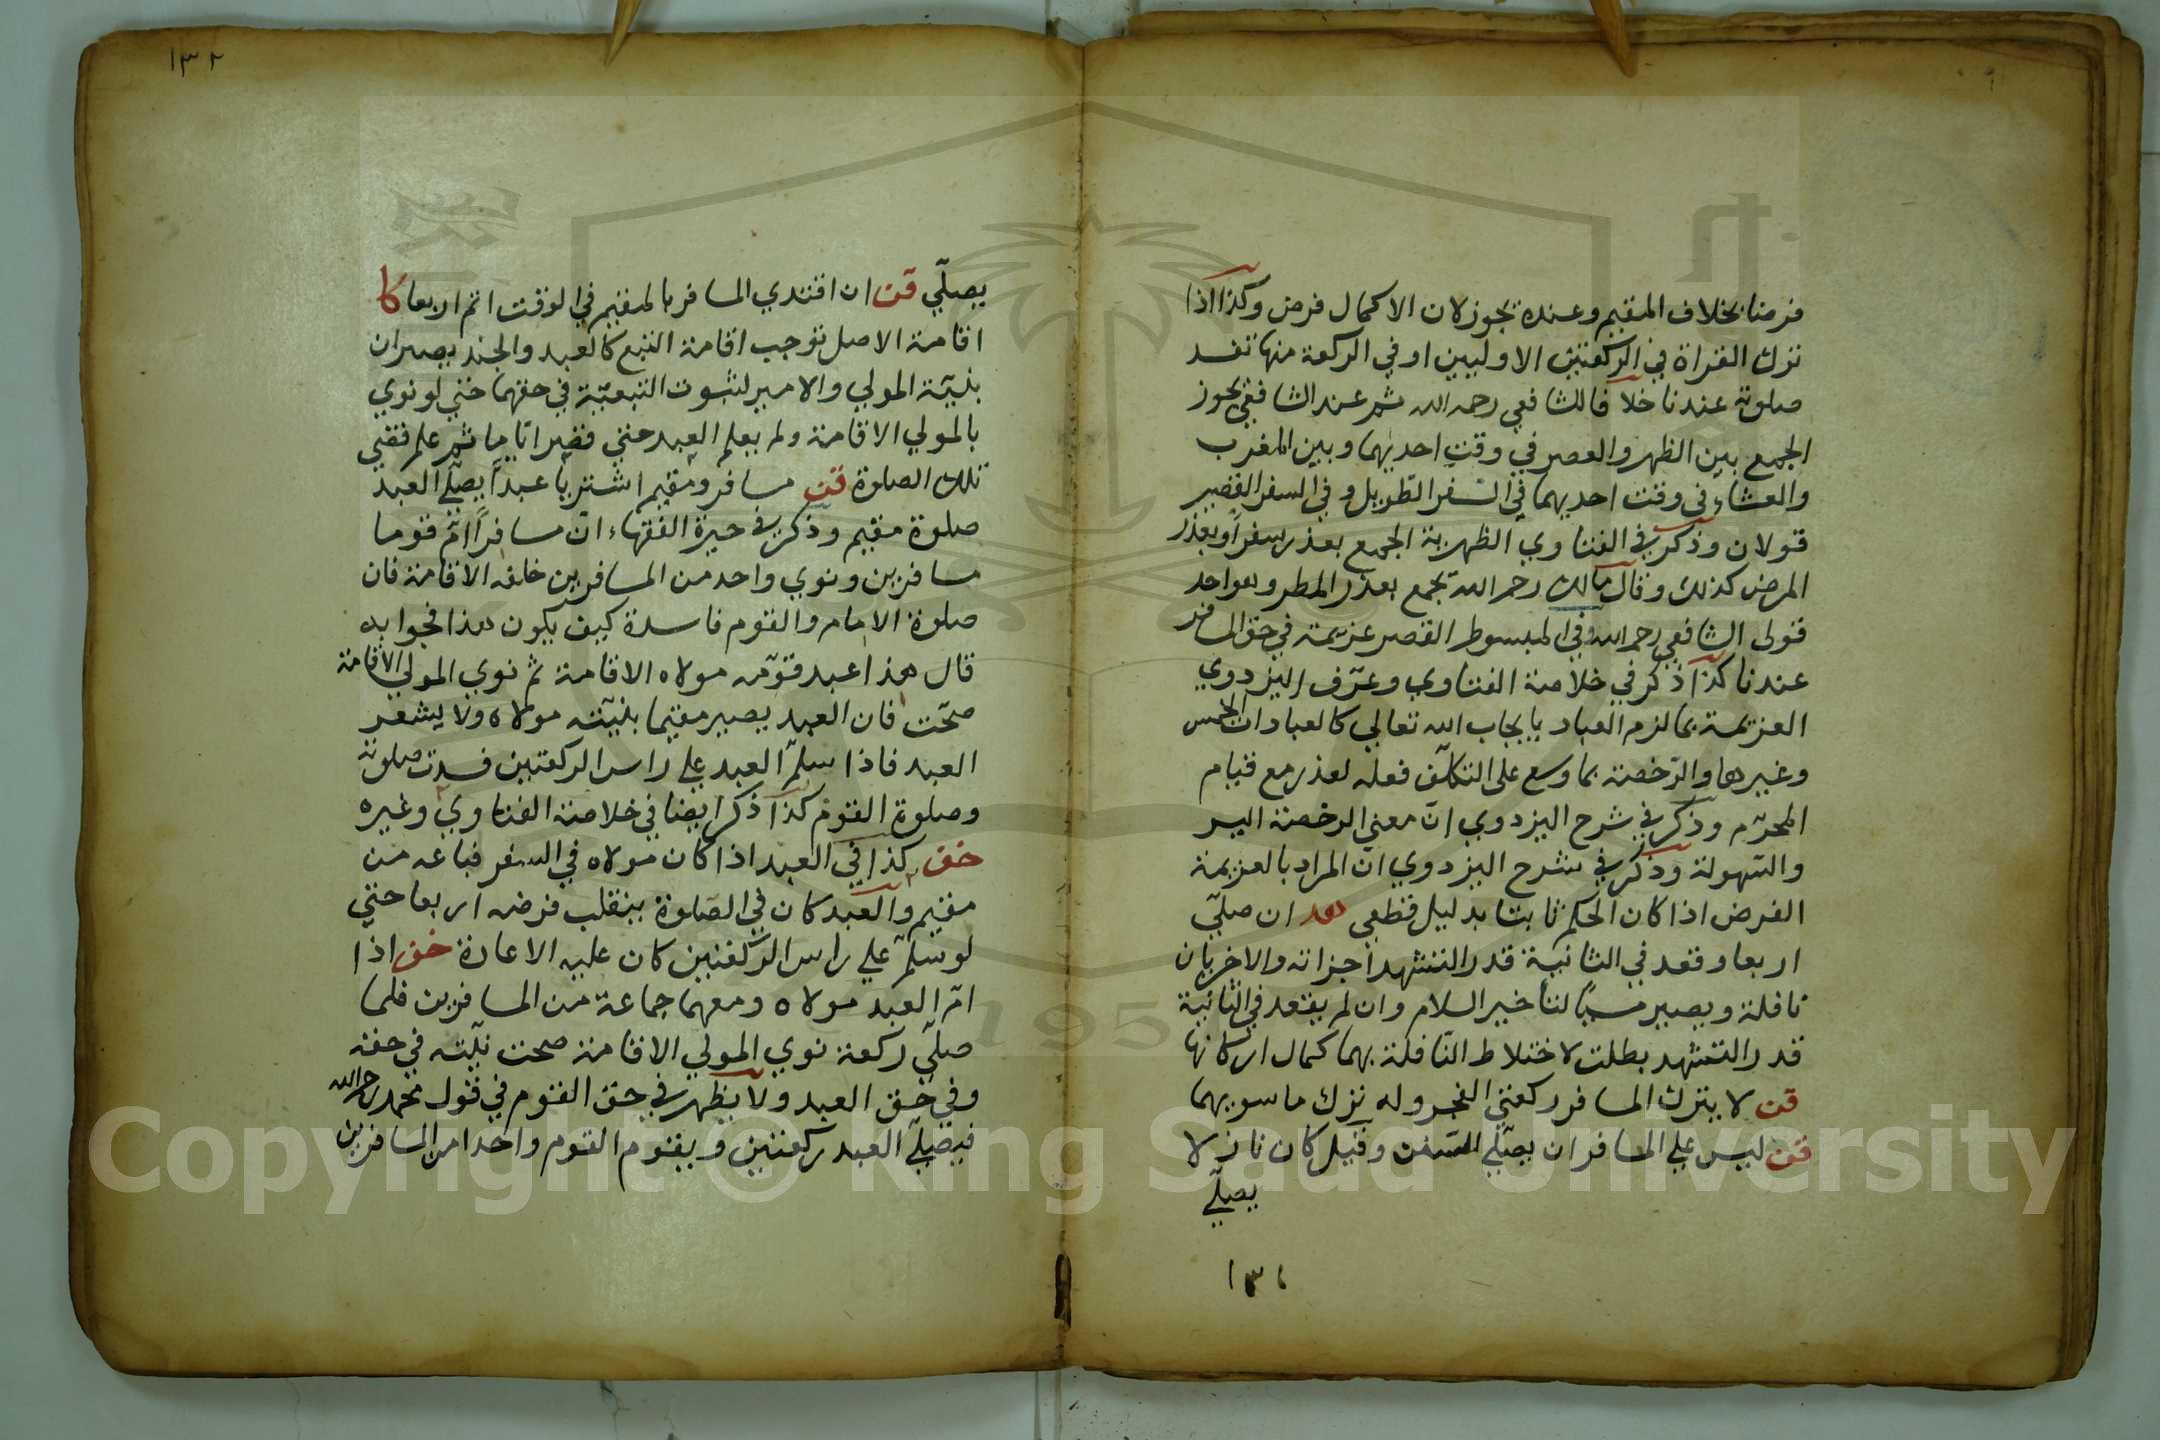 فرضنا بخلاف المقيم وعنده يجوز لان الاكمال فرض وكذا اذا
ترك القراة في الركعتين الاوليين او في الركعة منها تفسد
صلوته عندنا خلافا للشافعي رحمه الله ثم عند الشافعي يجوز
الجمع بين الظهر والعصر في وقت احديهما وبين المغرب
والعشاء في وقت احديهما في السفر الطويل وفي السفر القصير
قولان وذكر في الفتاوي الظهرية الجمع بعذر سفر او بعذر
المرض كذلك وقال مالك رحمه الله يجمع بعذر المطر وهو احد
قولى الشافعي رحمه الله وفي المبسوط القصر عزيمة في حق المسافر
عندنا كذا ذكر في خلاصة الفتاوي وعرّف البزدوي
العزيمة بما لزم العباد بايجاب الله تعالي كالعبادات الخمس
وغيرها والرّخصة بما وسع على المتكلّف فعله لعذر مع قيام
المحرّم وذكر في شرح البزدوي انّ معني الرخصة اليسر
والسّهولة وذكر في شرح البزدوي انّ المراد بالعزيمة
الفرض اذا كان الحكم ثابتا بدليل قطعي هد ان صلّي
اربعا وقعد في الثانية قدر التشهد اجزاته والاخريان
نافلة ويصير مسيئا لتأخير السلام وان لم يقعد في الثانية
قدر التشهد بطلت لاختلاط النّافلة بهما كمال اركانها
قن لا يترك المسافر ركعتي الفجر وله ترك ما سويهما
قن ليس علي المسافر ان يصلّي السّنن وقيل كان نازلا
يصلّي
١٣١
١٣٢
يصلّي قن ان اقتدي المسافر بالمقيم في الوقت اتم اربعا كا
اقامة الاصل توجب اقامة التبع كالعبد والجند يصيران
بنيّة المولي والامير لثبوت التبعيّة في حقهما حتي لو نوي
بالمولي الاقامة ولم يعلم العبد حتي قصر ايّاما ثم علم فقضي
تلك الصلوة قن مسافر ومقيم اشتريا عبداً يصلّي العبد
صلوة مقيم وذكر في حيرة الفقهاء انّ مسافراً امّ قوما
مسافرين ونوي واحد من المسافرين خلفه الاقامة فان
صلوة الامام والقوم فاسدة كيف يكون هذا فجوابه
قال هذا عبد قوّمه مولاه الاقامة ثم نوي المولي الاقامة
صحّت فان العبد يصير مقيما بنيّته مولاه ولا يشعر
العبد فاذا سلّم العبد علي راس الركعتين فسدت صلوته
وصلوة القوم كذا ذكر ايضا في خلاصة الفتاوي وغيره
خف كذا في العبد اذا كان مولاه في السفر فباعه من
مقيم والعبد كان في الصّلوة ينقلب فرضه اربعا حتي
لو سلّم علي راس الركعتين كان عليه الاعادة خف اذا
امّ العبد مولاه ومعهما جماعة من المسافرين فلما
صلّي ركعة نوي المولي الاقامة صحت نيّته في حقه
وفي حق العبد ولا يظهر في حق القوم في قول محمد رحمه الله
فيصلّي العبد ركعتين ويقوم القوم واحدا من المسافرين
Copyright © King Saud University
195